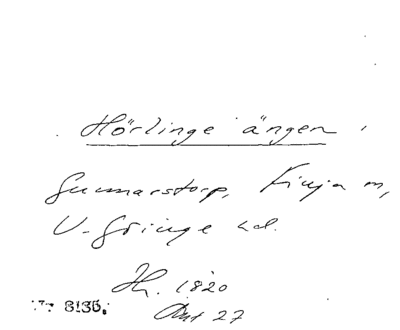 Hörlinge ängen
Gunnarstorp, Finja m,
V-Göinge hd.
Hh. 1820
27
8135.